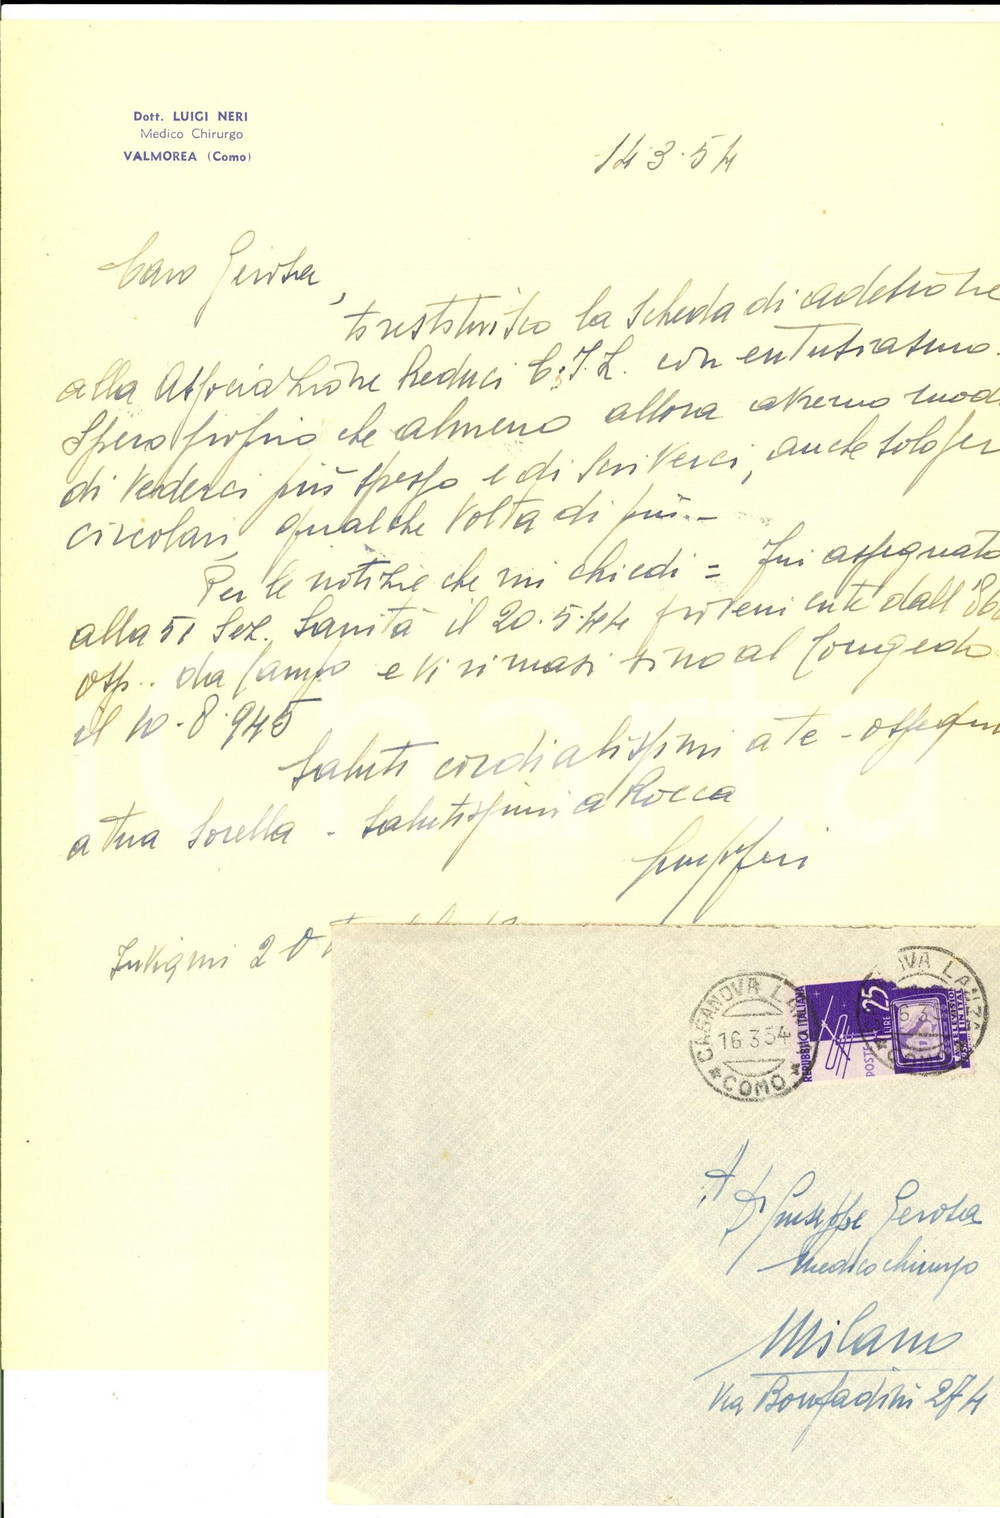 Dott. LUIGI NERI
Medico Chirurgo
VALMOREA (Como)
14.3.54
Caro Gerosa,
ti restituisco la scheda di adesione
alla Associazione Reduci C.I.L. con entusiasmo.
Spero proprio che almeno allora avremo mod
di vederci più spesso e di scriverci, anche solo per
circolari, qualche volta di più.-
Per le notizie che mi chiedi = Fui assegnato
alla 51 Sez. Sanità il 20.5.44 proveniente dall'
osp. da Campo e vi rimasi sino al Congedo
il 10-8-945
Saluti cordialissimi a te - ossequi
a tua Sorella - Salutissimi a Rocca
Neri
20
CASANOVA LANZA
16.3.54
COMO
REPUBBLICA ITALIANA
POSTE
LIRE 25
A
Dr Giuseppe Gerosa
medico chirurgo
Milano
Via Bonfadini 274